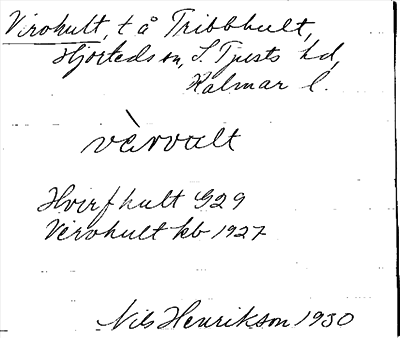 Virohult, t å Tribbhult,
Hjorteds sn, S. Tjusts hd,
Kalmar l.
vèrvult
Hvirfhult G29
Virohult kb 1927
Nils Henrikson 1930